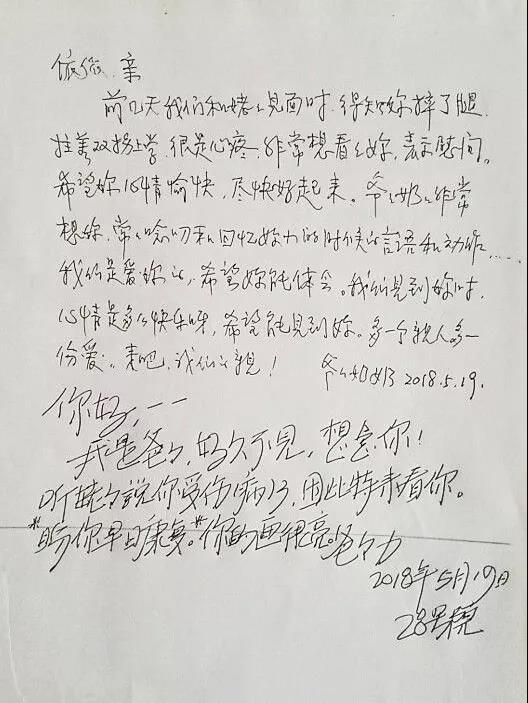 依依,亲
前几天我们和姥姥见面时,得知妳摔了腿,
拄着双拐上学,很是心疼,非常想看看妳,表示慰问。
希望妳心情愉快,尽快好起来。爷爷奶奶非常
想妳,常常念叨和回忆妳小的时候的言语和动作……
我们是爱妳的,希望妳能体会。我们见到妳时,
心情是多么快乐呀,希望能见到妳。多一个亲人多一
份爱。来吧,我们的亲!
爷爷奶奶 2018.5.19.
你好,一一
我是爸爸,好久不见,想念你!
听姥姥说你受伤病了,因此特来看你。
盼你早日康复。你的画很亮。爸爸
2018年5月19日